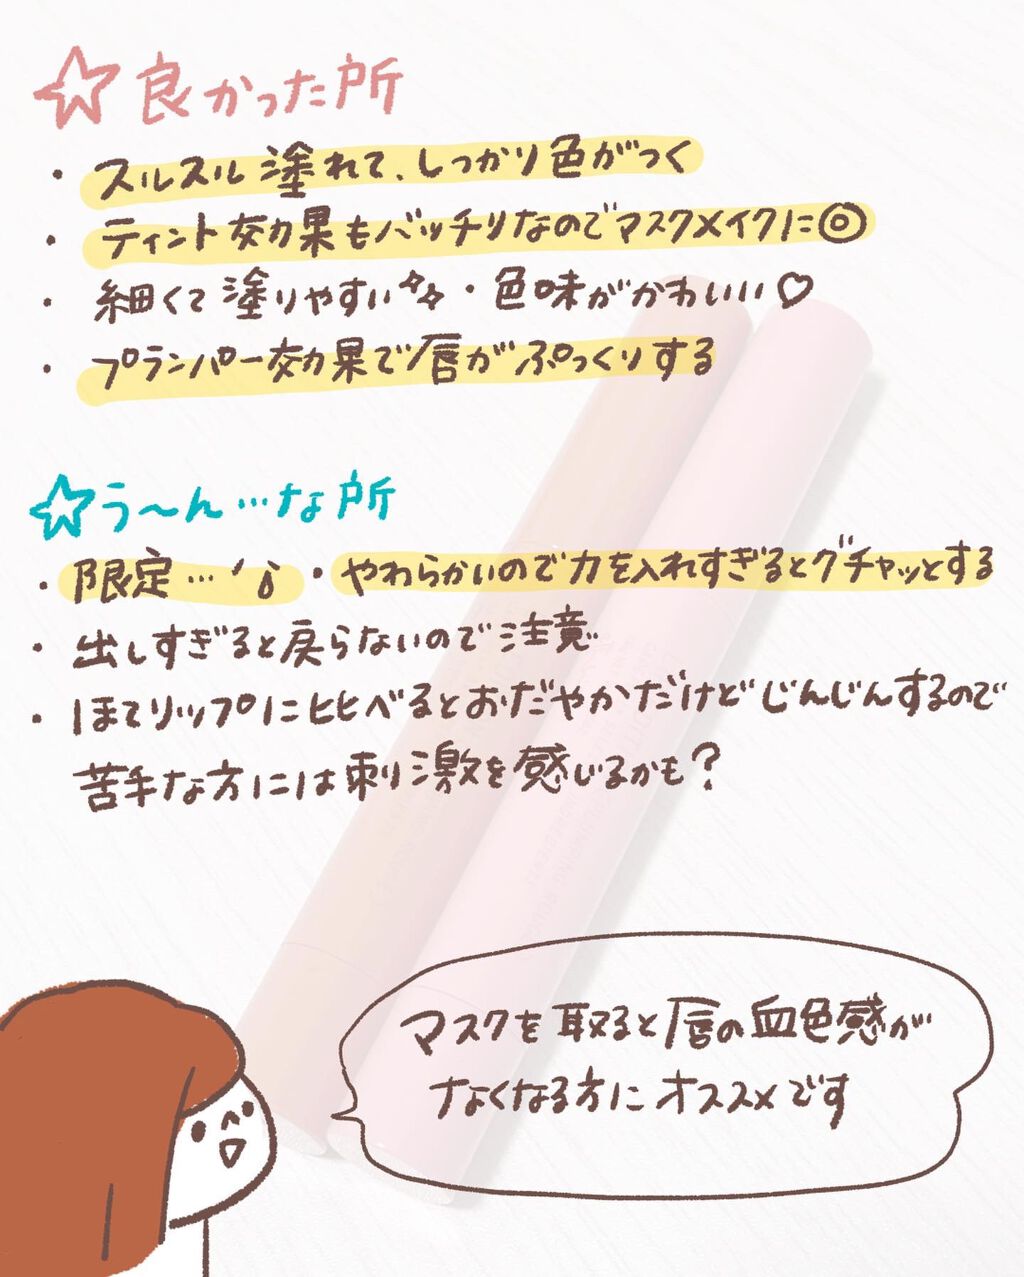 ☆良かった所
・スルスル塗れて、しっかり色がつく
・ティント効果もバッチリなのでマスクメイクに◎
・細くて塗りやすい・色味がかわいい♡
・プランパー効果で唇がぷっくりする
☆う〜ん…な所
・限定…・やわらかいので力を入れすぎるとグチャッとする
・出しすぎると戻らないので注意
・ほてリップに比べるとおだやかだけどじんじんするので
苦手な方には刺激を感じるかも?
マスクを取ると唇の血色感が
なくなる方にオススメです